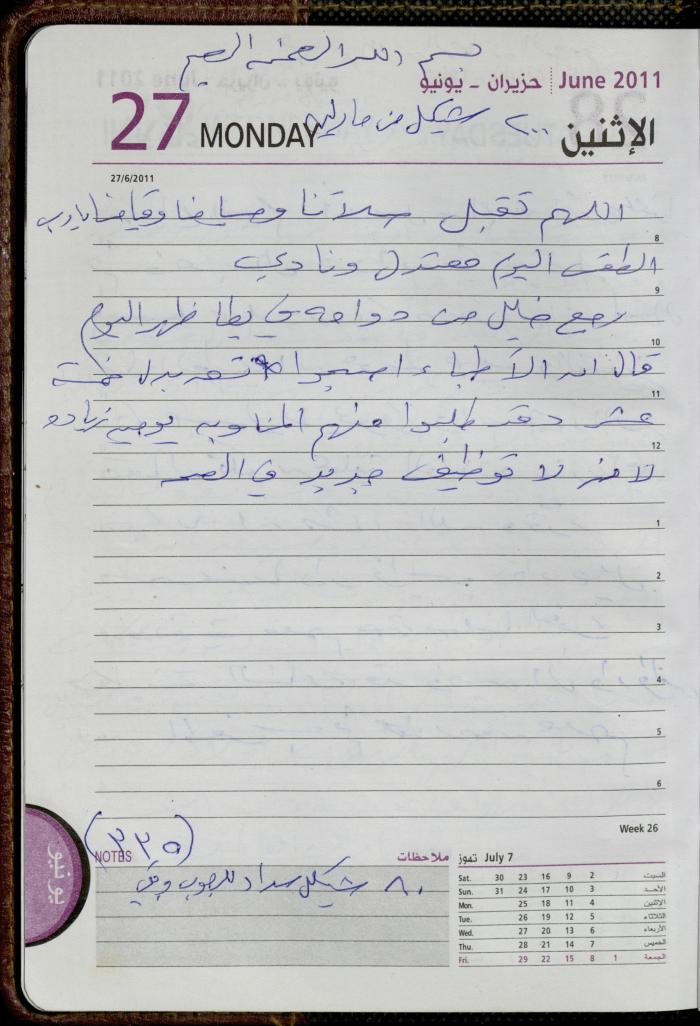 بسم الله الرحمن الرحيم
حزيران - يونيو June 2011
27 MONDAY ٢٠٠٠ شيكل من مارليه الإثنين
27/6/2011
اللهم تقبل صلاتنا وصيامنا وقيامنا يارب
8
الطقس اليوم معتدل ونادي
9
رجع خليل من دوامه في يطا ظهر اليوم
10
قال ان الأطباء اصبحوا تسعه بدل خمسة
11
عشر وقد طلبوا منهم المناوبه يومين زياده
12
لانه لا توظيف جديد في الصحه
1
2
3
4
5
6
Week 26
(٣٣٥)
NOTES ملاحظات
٨٠ شيكل سداد
يونيو
July 7 تموز
Sat. 30 23 16 9 2 السبت
Sun. 31 24 17 10 3 الأحد
Mon. 25 18 11 4 الإثنين
Tue. 26 19 12 5 الثلاثاء
Wed. 27 20 13 6 الأربعاء
Thu. 28 21 14 7 الخميس
Fri. 29 22 15 8 1 الجمعة